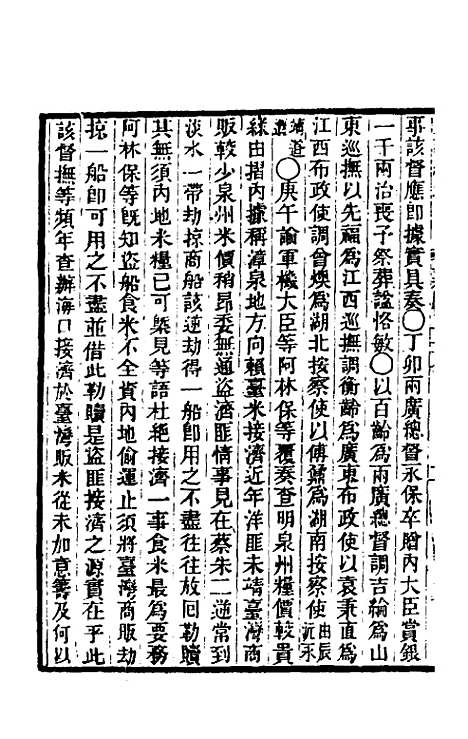 耶該督應即據實具奏〇丁卯兩廣總督永保卒贈內大臣賞銀
一千兩治喪予祭葬諡恪敏〇以百齡爲兩廣總督調吉綸爲山
東巡撫以先福爲江西巡撫調衡齡爲廣東布政使以袁秉直爲
江西布政使調曾燠爲湖北按察使以傅鼐爲湖南按察使由辰沅永
靖道〇庚午諭軍機大臣等阿林保等覆奏查明泉州糧價較貴
緣由摺內據稱漳泉地方向賴臺米接濟近年洋匪未靖臺灣商
販較少泉州米價稍昂委無通盜濟匪情事見在蔡朱二逆常到
淡水一帶劫掠商船該逆劫得一船卽用之不盡往往放回勒贖
其無須內地米糧已可槩見等語杜絕接濟一事食米最爲要務
阿林保等旣知盜船食米不全資內地偷運止須將臺灣商販劫
掠一船卽可用之不盡並借此勒贖是盜匪接濟之源實在乎此
該督撫等頻年查辦海口接濟於臺灣販米從未加意籌及何以